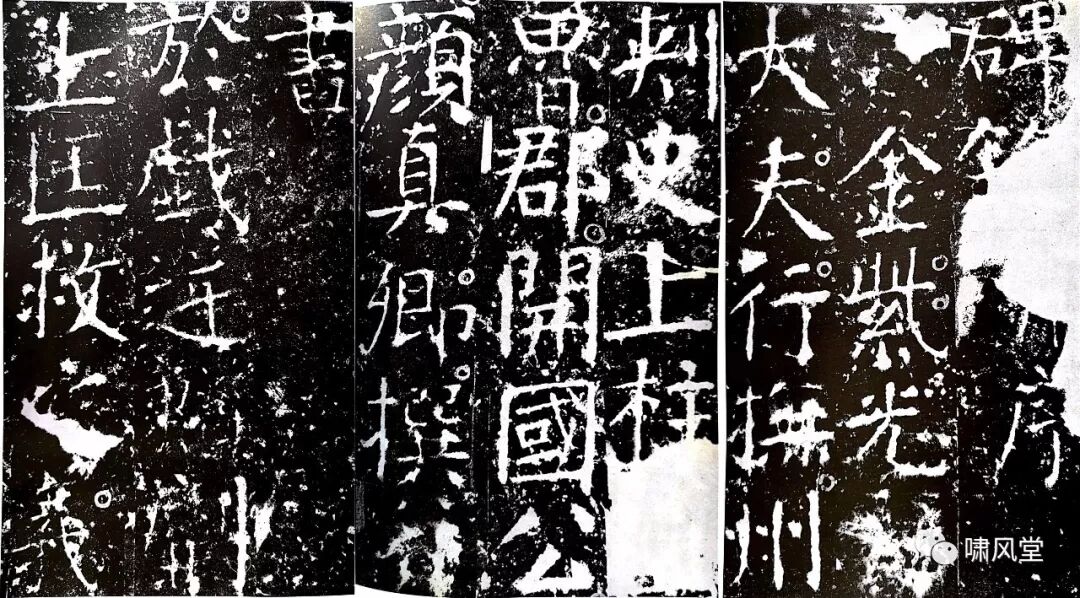 碑序
金紫光
大夫行撫州
刺史上柱
魯郡開國公
顏真卿撰
書
於戲
上匡救之
啸风堂